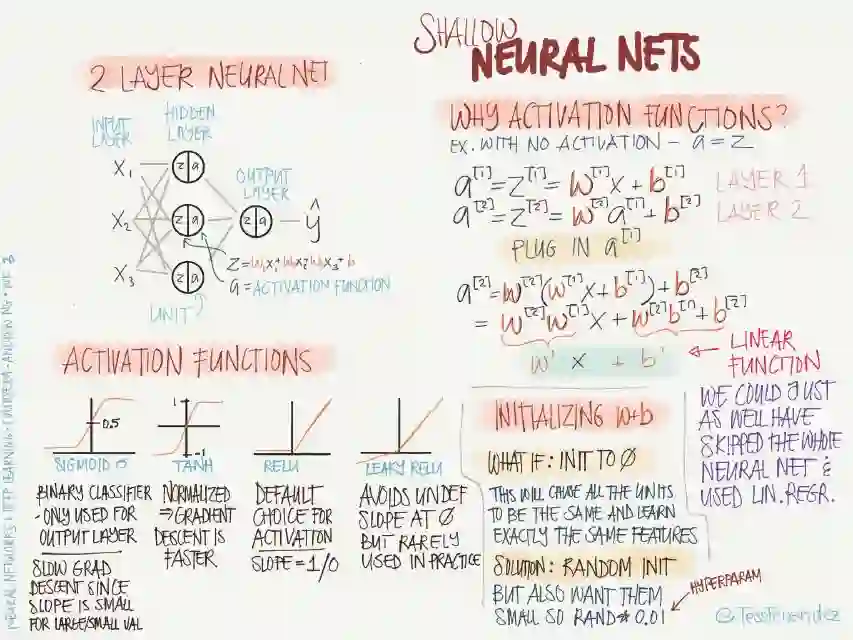 SHALLOW
NEURAL NETS
2 LAYER NEURAL NET
INPUT
LAYER
HIDDEN
LAYER
OUTPUT
LAYER
X₁
X₂
X₃
z|a
z|a
z|a
z|a
ŷ
Z=W₁X₁+W₂X₂+W₃X₃+b
a=ACTIVATION FUNCTION
UNIT
ACTIVATION FUNCTIONS
0.5
SIGMOID σ
BINARY CLASSIFIER
- ONLY USED FOR
OUTPUT LAYER
SLOW GRAD
DESCENT SINCE
SLOPE IS SMALL
FOR LARGE/SMALL VAL
1
-1
TANH
NORMALIZED
⇒ GRADIENT
DESCENT IS
FASTER
RELU
DEFAULT
CHOICE FOR
ACTIVATION
SLOPE = 1/0
LEAKY RELU
AVOIDS UNDEF
SLOPE AT Ø
BUT RARELY
USED IN PRACTICE
WHY ACTIVATION FUNCTIONS?
EX. WITH NO ACTIVATION - a = Z
a[1]=Z[1]= W[1]X + b[1] LAYER 1
a[2]=Z[2]= W[2]a[1]+ b[2] LAYER 2
PLUG IN a[1]
a[2]=W[2](W[1]X+b[1])+b[2]
= W[2]W[1]X + W[2]b[1]+b[2]
W' X + b'
LINEAR
FUNCTION
WE COULD JUST
AS WELL HAVE
SKIPPED THE WHOLE
NEURAL NET &
USED LIN. REGR.
INITIALIZING W+b
WHAT IF: INIT TO Ø
THIS WILL CAUSE ALL THE UNITS
TO BE THE SAME AND LEARN
EXACTLY THE SAME FEATURES
SOLUTION: RANDOM INIT
BUT ALSO WANT THEM
SMALL SO RAND * 0.01
HYPERPARAM
@TessFerrandez